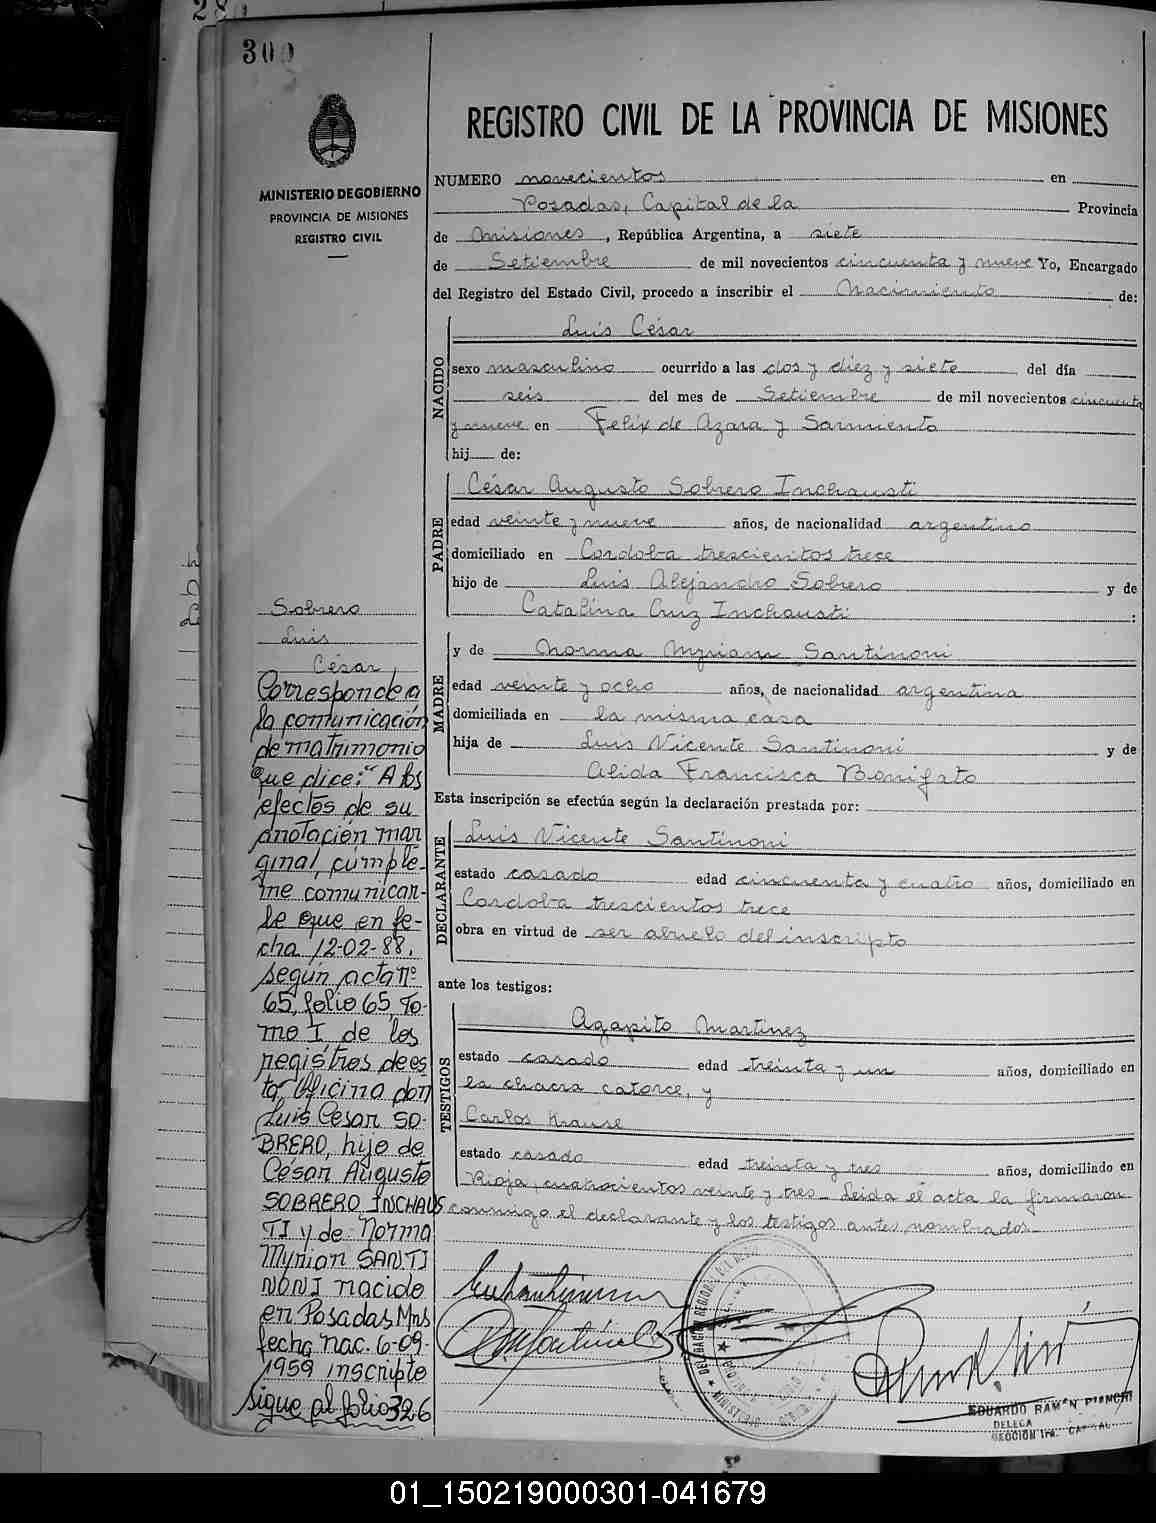 300
MINISTERIO DE GOBIERNO
PROVINCIA DE MISIONES
REGISTRO CIVIL
REGISTRO CIVIL DE LA PROVINCIA DE MISIONES
NUMERO novecientos en
Posadas, Capital de la Provincia
de Misiones, República Argentina, a siete
de Setiembre de mil novecientos cincuenta y nueve Yo, Encargado
del Registro del Estado Civil, procedo a inscribir el Nacimiento de:
NACIDO
Luis César
sexo masculino ocurrido a las dos y diez y siete del día
seis del mes de Setiembre de mil novecientos cincuenta
y nueve en Felix de Azara y Sarmiento
hij de:
PADRE
César Augusto Sobrero Inchausti
edad veinte y nueve años, de nacionalidad argentino
domiciliado en Cordoba trescientos trece
hijo de Luis Alejandro Sobrero y de
Catalina Cruz Inchausti :
MADRE
y de Norma Myriam Santinoni
edad veinte y ocho años, de nacionalidad argentina
domiciliada en la misma casa
hija de Luis Vicente Santinoni y de
Alida Francisca Bonifato
Esta inscripción se efectúa según la declaración prestada por:
DECLARANTE
Luis Vicente Santinoni
estado casado edad cincuenta y cuatro años, domiciliado en
Cordoba trescientos trece
obra en virtud de ser abuelo del inscripto
ante los testigos:
TESTIGOS
Agapito Martinez
estado casado edad treinta y un años, domiciliado en
la chacra catorce, y
Carlos Krause
estado casado edad treinta y tres años, domiciliado en
Rioja, cuatrocientos veinte y tres_ Leida el acta la firmaron
conmigo el declarante y los testigos antes nombrados_
EDUARDO RAMON PIANCHI
SECCION 1ra. CAPITAL
Sobrero
Luis
César
Corresponde a
la comunicación
de matrimonio
que dice: "A los
efectos de su
anotación mar
ginal, cúmple-
me comunicar-
le que en fe-
cha 12-02-88,
según acta nº
65, folio 65 To-
mo I de los
registros de es
ta Oficina don
Luis Cesar SO-
BRERO, hijo de
César Augusto
SOBRERO INCHAUS
TI y de Norma
Myrian SANTI
NONI nacido
en Posadas Mns
fecha nac. 6-09-
1959 inscripto
sigue al folio 326
01_150219000301-041679